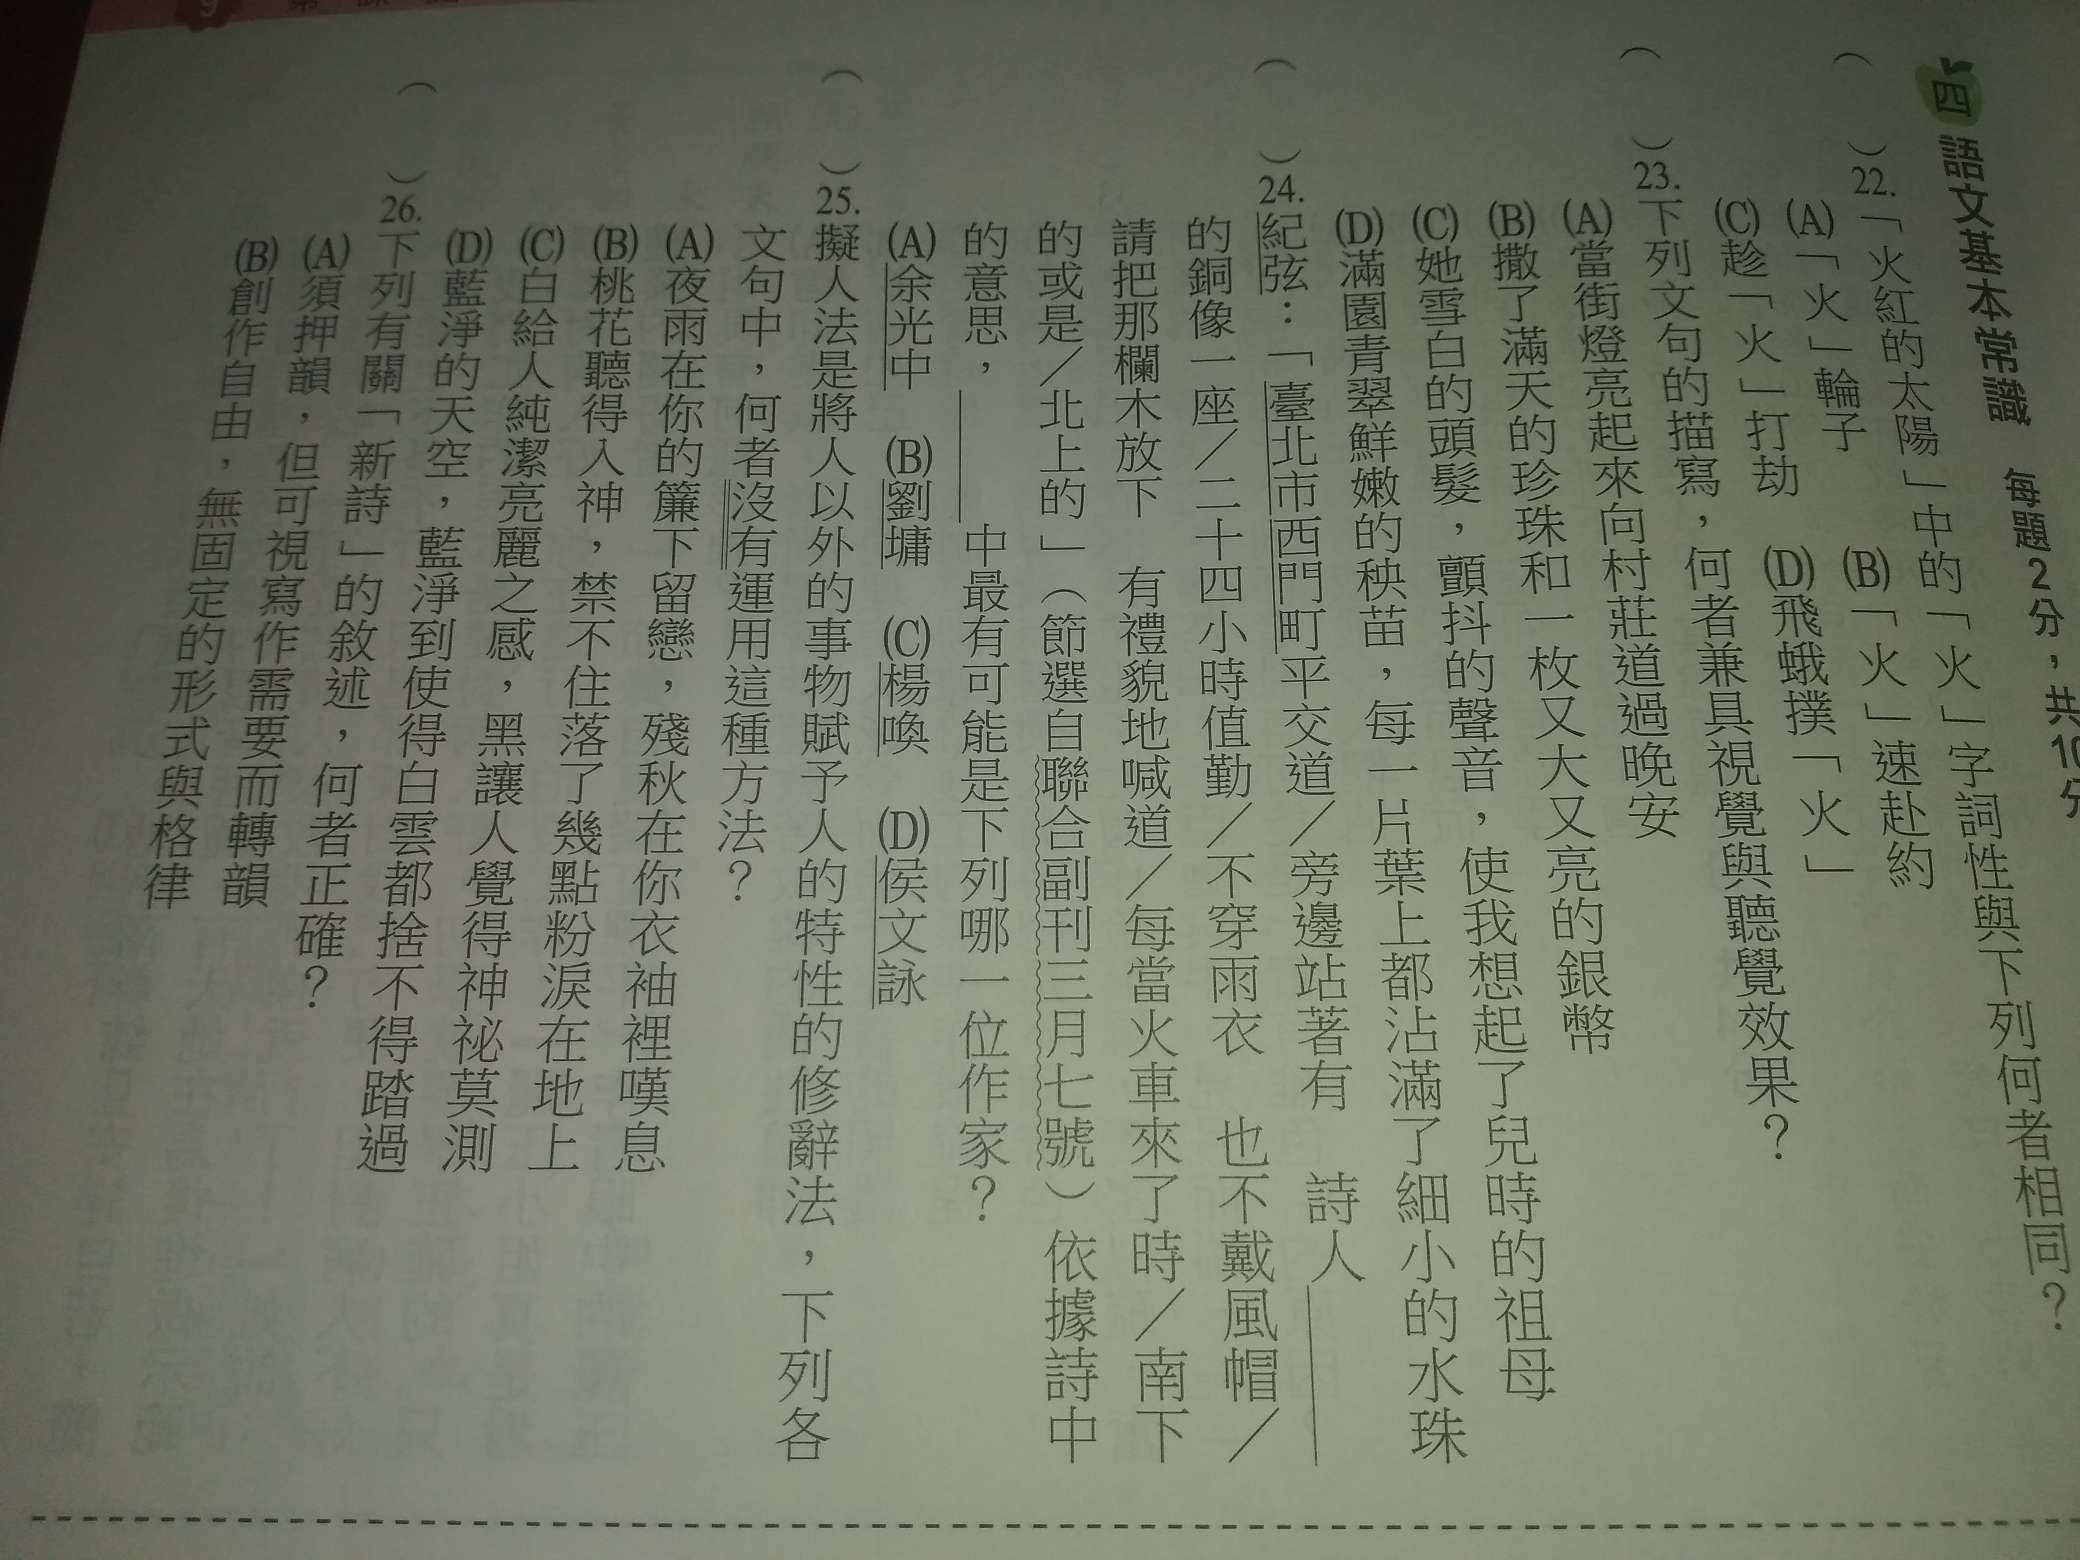 四 語文基本常識 每題2分，共10分
（ ）22.「火紅的太陽」中的「火」字詞性與下列何者相同？
(A)「火」輪子 (B)「火」速赴約
(C)趁「火」打劫 (D)飛蛾撲「火」
（ ）23.下列文句的描寫，何者兼具視覺與聽覺效果？
(A)當街燈亮起來向村莊道過晚安
(B)撒了滿天的珍珠和一枚又大又亮的銀幣
(C)她雪白的頭髮，顫抖的聲音，使我想起了兒時的祖母
(D)滿園青翠鮮嫩的秧苗，每一片葉上都沾滿了細小的水珠
（ ）24.紀弦：「臺北市西門町平交道／旁邊站著有 詩人＿＿＿
的銅像一座／二十四小時值勤／不穿雨衣 也不戴風帽／
請把那欄木放下 有禮貌地喊道／每當火車來了時／南下
的或是／北上的」（節選自聯合副刊三月七號）依據詩中
的意思，＿＿＿中最有可能是下列哪一位作家？
(A)余光中 (B)劉墉 (C)楊喚 (D)侯文詠
（ ）25.擬人法是將人以外的事物賦予人的特性的修辭法，下列各
文句中，何者沒有運用這種方法？
(A)夜雨在你的簾下留戀，殘秋在你衣袖裡嘆息
(B)桃花聽得入神，禁不住落了幾點粉淚在地上
(C)白給人純潔亮麗之感，黑讓人覺得神祕莫測
(D)藍淨的天空，藍淨到使得白雲都捨不得踏過
（ ）26.下列有關「新詩」的敘述，何者正確？
(A)須押韻，但可視寫作需要而轉韻
(B)創作自由，無固定的形式與格律